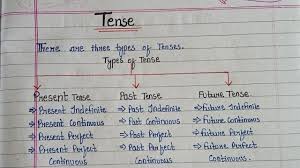 Tense
There are three types of Tenses.
Types of Tense
Present Tense Past Tense Future Tense
⇒ Present Indefinite ⇒ Past Indefinite ⇒ Future Indefinite
⇒ Present Continuous ⇒ Past Continuous ⇒ Future Continuous
⇒ Present Perfect ⇒ Past Perfect ⇒ Future Perfect
⇒ Present Perfect ⇒ Past Perfect ⇒ Future Perfect
Continuous Continuous. Continuous.